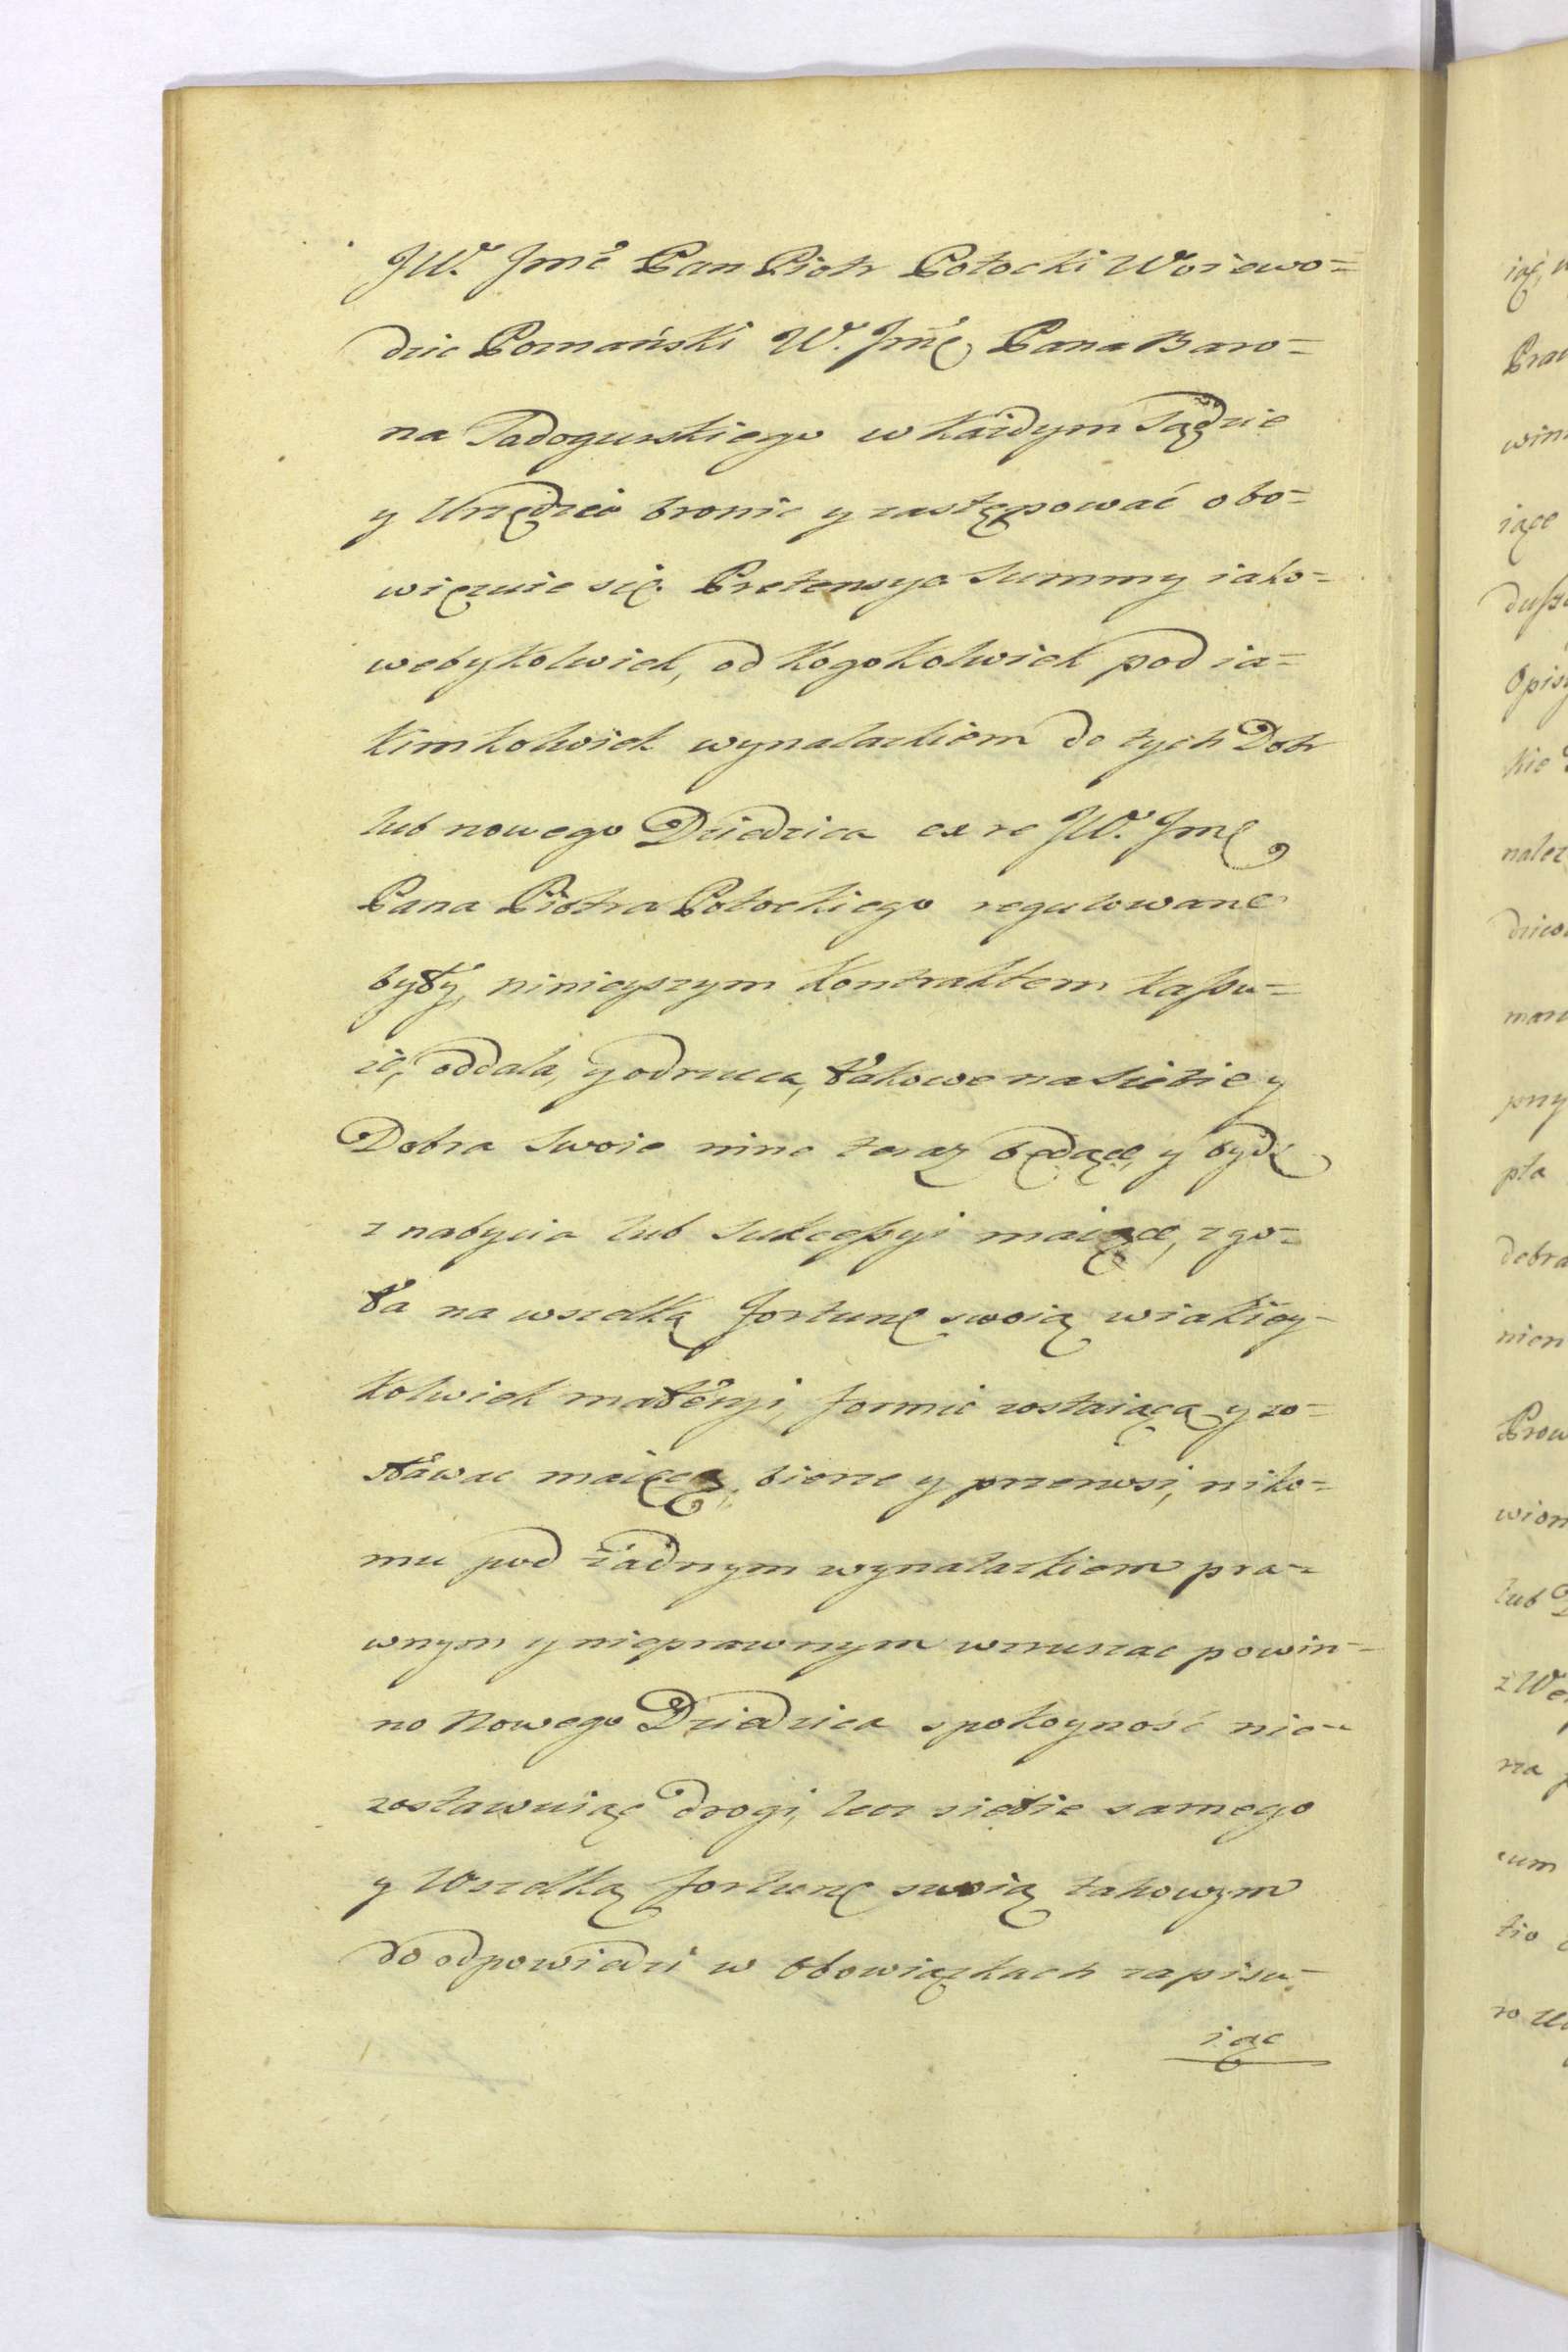 JW. Jmć Pan Piotr Potocki Woiewo=
dzic Poznański W. Jmę Pana Baro=
na Sadogurskiego w każdym Sądzie
y Urzędzie bronic y zastępować obo=
więzuie się. Pretensye Summy iako=
webykolwiek, od kogokolwiek pod ia=
kimkolwiek wynalazkiem do tych Dobr
lub nowego Dziedzica ex re JW. Jmę
Pana Piotra Potockiego regulowane
były, ninieyszym Kontraktem kassu=
ie, oddala, y odrzuca, takowe na Siebie y
Dobra Swoie inne teraz będące, y bydź
z nabycia lub Sukcessyi maiące, zgo=
ła na wszelką fortunę swoią w iakiey=
kolwiek materyi, formie zostaiącą y zo=
stawac maiącą, bierze y przenosi, niko=
mu pod żadnym wynalazkiem pra=
wnym y nieprawnym wzruszac powin=
no Nowego Dziedzica spokoyność nie=
zostawuiąc drogi, lecz siebie samego
y Wszelką fortunę swoią takowym
do odpowiedzi w Obowiązkach zapisu=
iąc